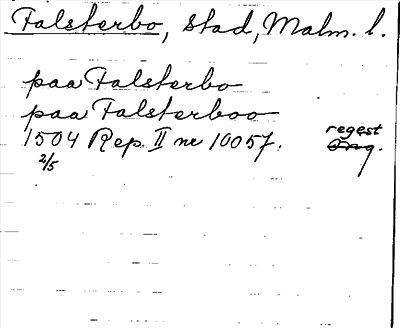 Falsterbo, stad, Malm. l.
paa Falsterbo
paa Falsterboo
1504 Rep. II nr 10057. regest
2/5 Orig.